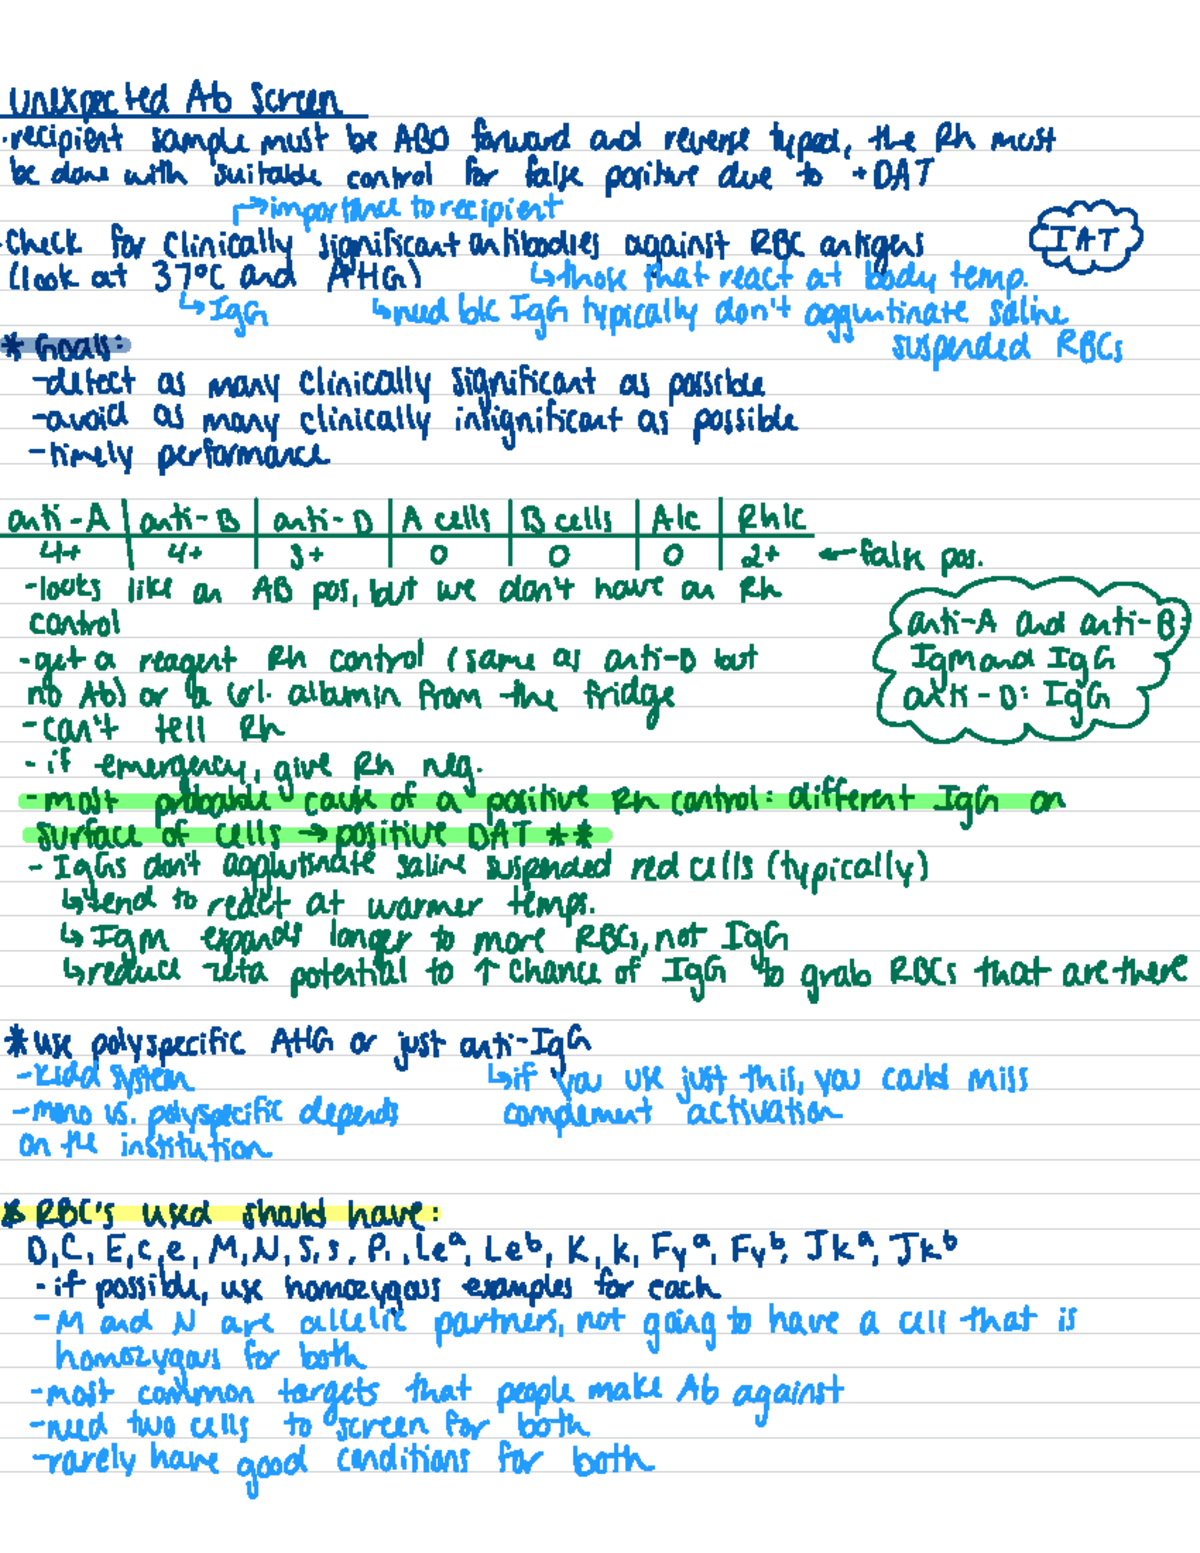 Unexpected Ab Screen
·recipient sample must be ABO forward and reverse typed, the Rh must
be done with suitable control for false positive due to +DAT
↱importance to recipient
·Check for clinically significant antibodies against RBC antigens
IAT
(look at 37°C and AHG)
↳those that react at body temp.
↳IgG
↳need b/c IgG typically don't agglutinate saline
suspended RBCs
* Goals:
-detect as many clinically significant as possible
-avoid as many clinically insignificant as possible
-timely performance
anti-A | anti-B | anti-D | A cells | B cells | A1c | Rh1c
4+ | 4+ | 3+ | 0 | 0 | 0 | 2+ ← false pos.
-looks like an AB pos, but we don't have an Rh
control
-get a reagent Rh control (same as anti-D but
no Ab) or a 6%. albumin from the fridge
anti-A and anti-B:
IgM and IgG
anti-D: IgG
-can't tell Rh
-if emergency, give Rh neg.
-most probable cause of a positive Rh control: different IgG on
surface of cells → positive DAT **
- IgGs don't agglutinate saline suspended red cells (typically)
↳tend to react at warmer temps.
↳IgM expands longer to more RBCs, not IgG
↳reduce zeta potential to ↑ chance of IgG to grab RBCs that are there
*use polyspecific AHG or just anti-IgG
-Kidd system
↳if you use just this, you could miss
complement activation
-mono vs. polyspecific depends
on the institution
* RBC's used should have:
D, C, E, c, e, M, N, S, s, P₁, Leᵃ, Leᵇ, K, k, Fyᵃ, Fyᵇ, Jkᵃ, Jkᵇ
-if possible, use homozygous examples for each
-M and N are allelic partners, not going to have a cell that is
homozygous for both
-most common targets that people make Ab against
-need two cells to screen for both
-rarely have good conditions for both